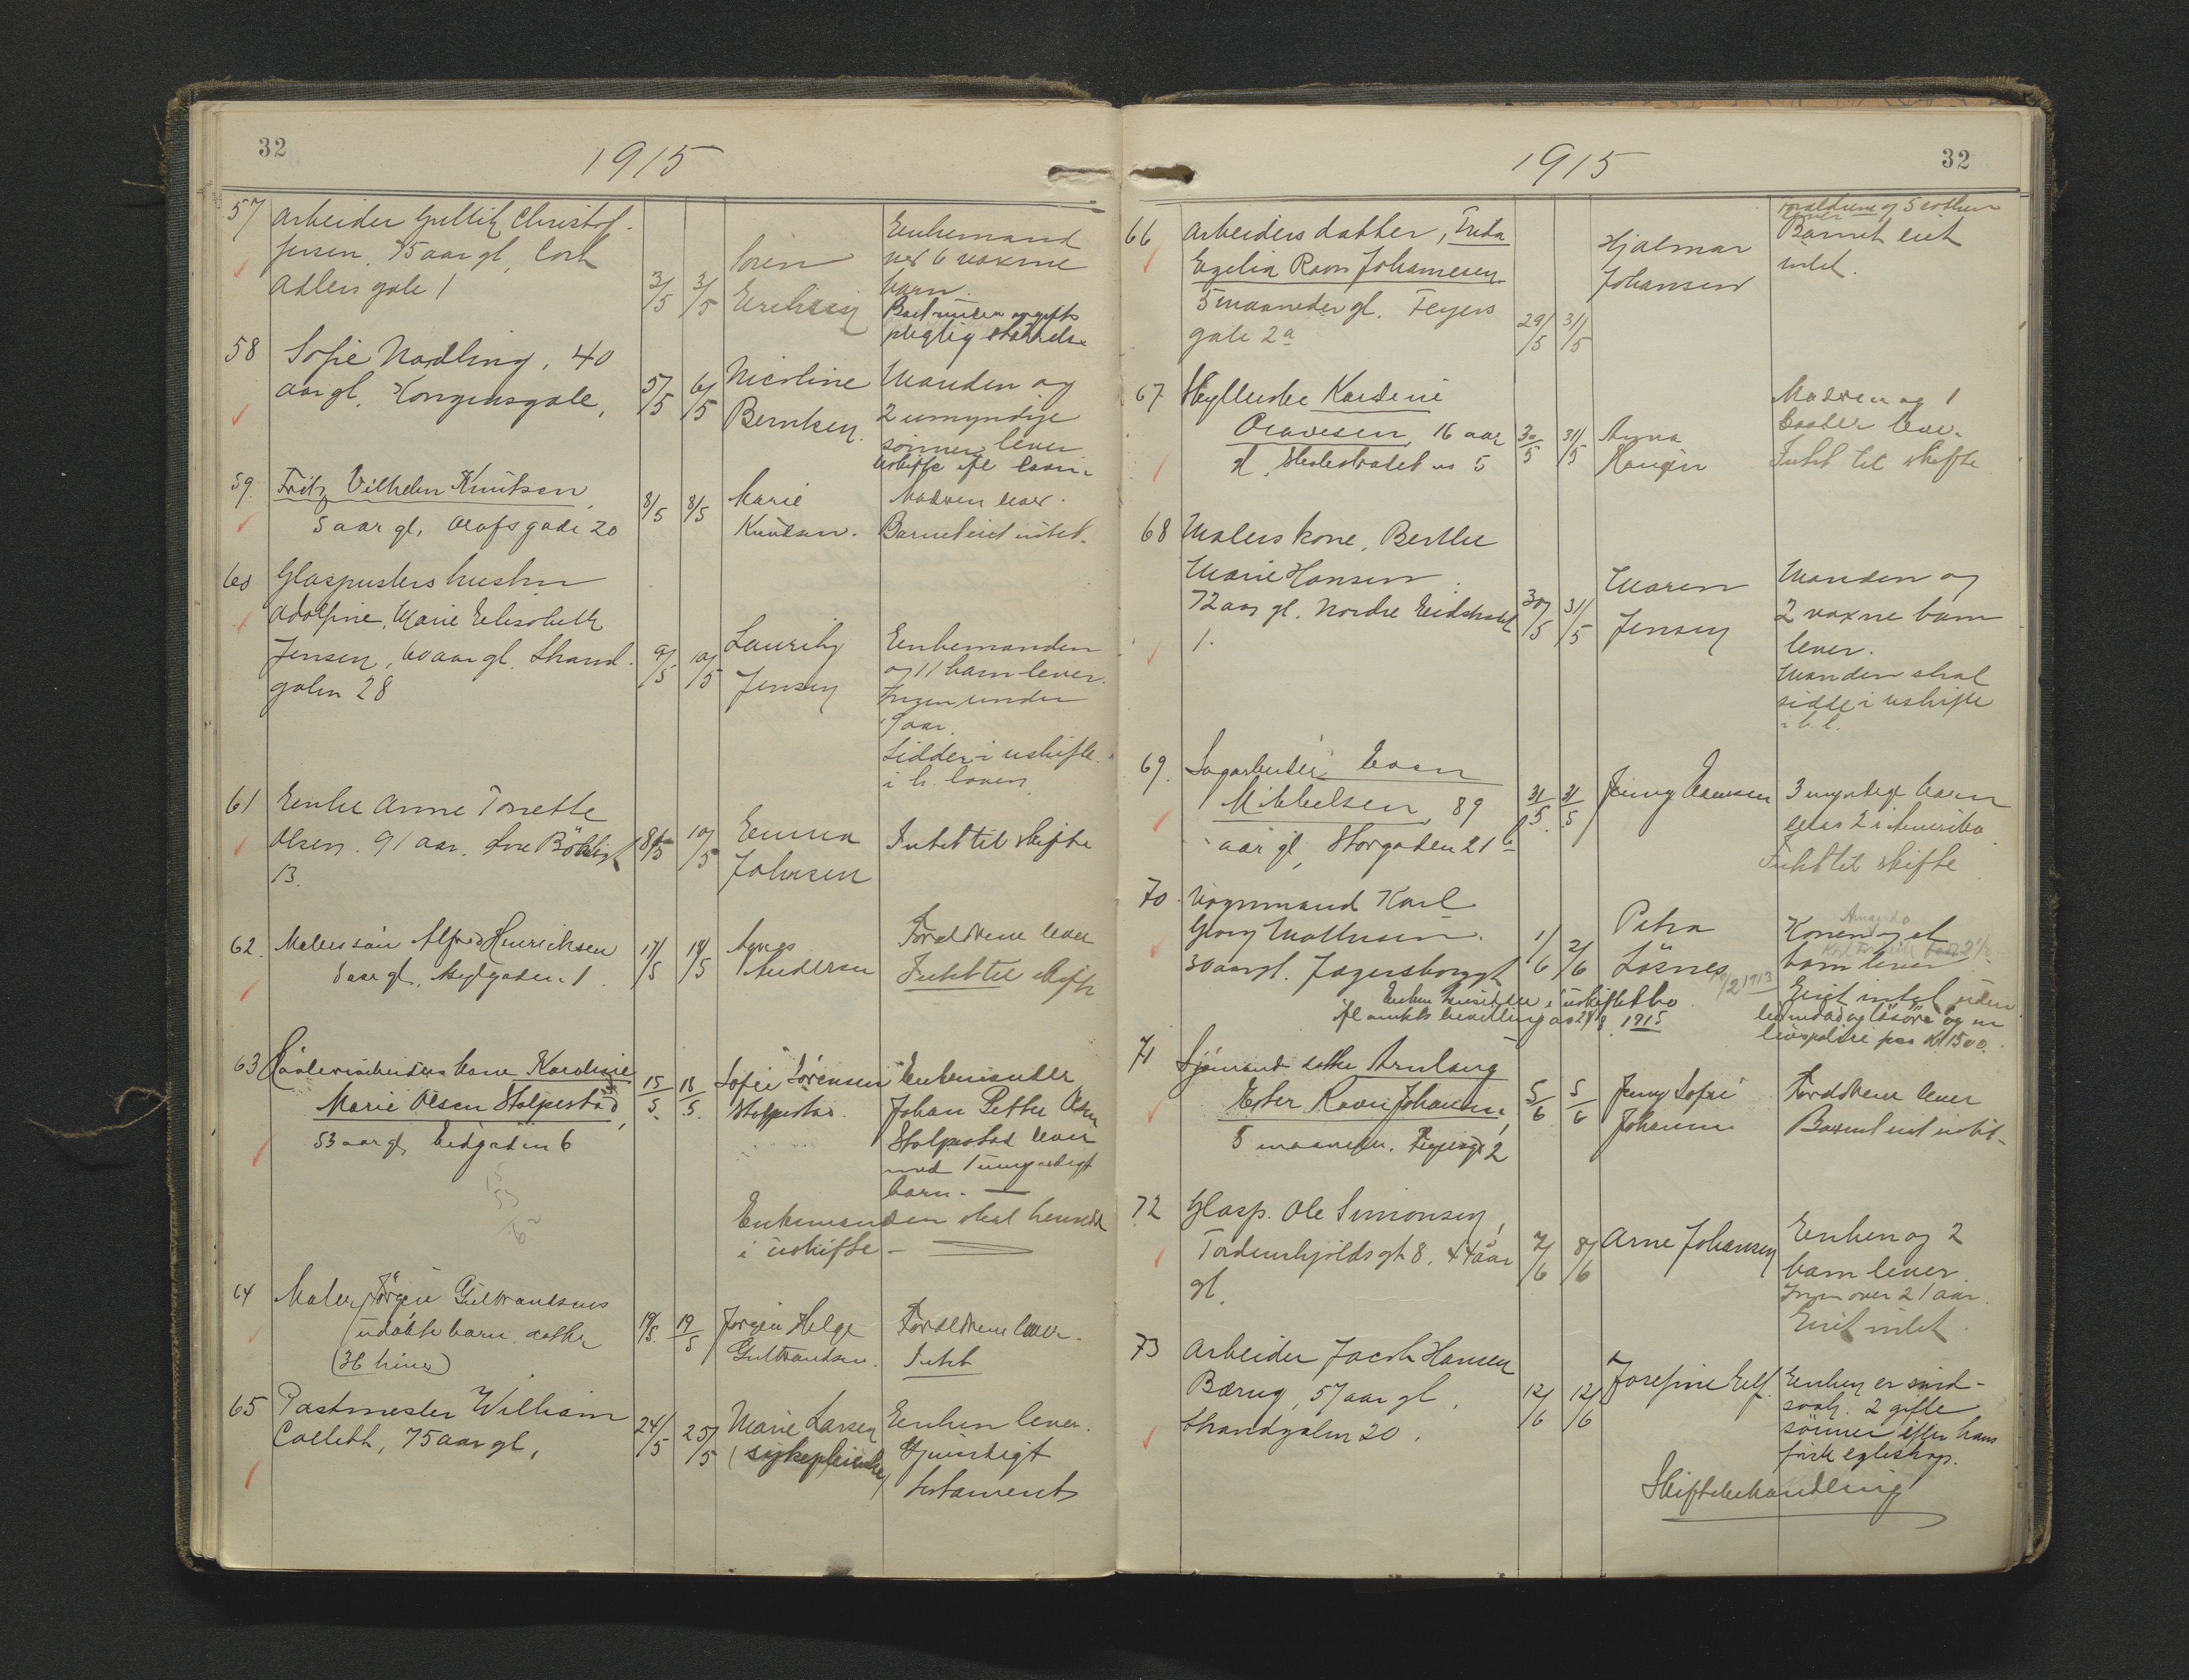 32
1915
57 Arbeider Gullik Christof.
Jensen, 75 aar gl, Cort
Adlers gate 1
3/5 3/5
Sören
Eriksen
Enkemand
ved 6 voxne
barn.
58 Sofie Nordling, 40
aar gl. Kongensgate,
5/5 6/5
Nicoline
Berntsen.
Manden og
2 umyndige
sönner lever
59 Fritz Vilhelm Knutsen,
5 aar gl, Olafsgade 20
8/5 8/5
Marie
Knudsen.
Moderen lever.
Barnet eiet intet.
60 Glaspusters hustru
Adolfine Marie Elisabeth
Jensen, 60 aar gl. Strand
gaten 28
9/5 10/5
Lauritz
Jensen
Enkemanden
og 11 barn lever.
Ingen under
aar.
Sidder i uskifte
i h. loven
61 Enke Anne Tonette
Olsen. 91 aar.
13.
10/5
Emma
Johnsen
Intet til skifte
62. Malers sön Alfred Henriksen
aar gl, 1.
17/5 18/5
Agnes
Andersen
Foreldrene lever
Intet til skifte
63 kone Karoline
Marie Olsen Stolpestad,
53 aar gl, 6
15/5. 18/5.
Sofie Sörensen
Stolpestad.
Enkemanden
Johan Petter Olsen
Stolpestad lever
med 1 umyndigt
barn. —
Enkemanden skal hensidde
i uskifte —
64 Maler Jörgen Gulbrandsens
udöbte barn datter
(36 timer)
19/5. 19/5
Jörgen Helge
Gulbrandsen.
Foreldrene lever.
Intet
65 Postmester William
Collett, 75 aar gl,
24/5 25/5
Marie Larsen
(sykepleierske)
Enken lever.
Gjensidigt
testament
1915
32
66 Arbeiders datter, Frida
Egelia Ravn Johannesen
5 maaneder gl. Feyers
gate 2a
29/5 31/5
Hjalmar
Johansen
Foreldrene og 5 söstren
lever
Barnet eiet
intet.
67 Kardine
Olavesen, 16 aar
gl, 5
30/5 31/5
Anna
Haugen
Moderen og 1
lever.
Intet til skifte
68 Malers kone, Berthe
Marie Hansen
72 aar gl, Nordre
1.
30/5 31/5
Maren
Jensen
Manden og
2 voxne barn
lever.
Manden skal
sidde i uskifte
i h. l.
69. Sagarbeider
Mikkelsen, 89
aar gl, Storgaden 21b
31/5. 31/5
Jenny Hansen
3 myndige barn
2 i Amerika
Intet til skifte
70. Vognmand Karl
Georg Mathisen.
30 aar gl. Jægersborggt
1/6 2/6
Petra
Lösnes
Konen og et
barn lever
Eiet intet uden
livspolise paa Kr 1500.
Enken hensidder i uskiftet bo
ifl amtets bevilling av 1915
71 Sjömand datter Arnlaug
Ester Ravn Johannes,
5 maaneder. 2
5/6 5/6
Jenny Sofie
Johannes
Foreldrene lever
Barnet eiet intet.
72 Glasp. Ole Simonsen,
Tordenskjolds gt 8. 44 aar
gl.
7/6 8/6
Arne Johansen
Enken og 2
barn lever.
Ingen over 21 aar.
Eiet intet.
73 Arbeider Jacob Hansen
Bærug, 57 aar gl,
Strandgaten 20.
12/6 12/6
Josefine
Enken er sind-
svak. 2 gifte
sönner efter hans
förste egteskap.
Skiftebehandling